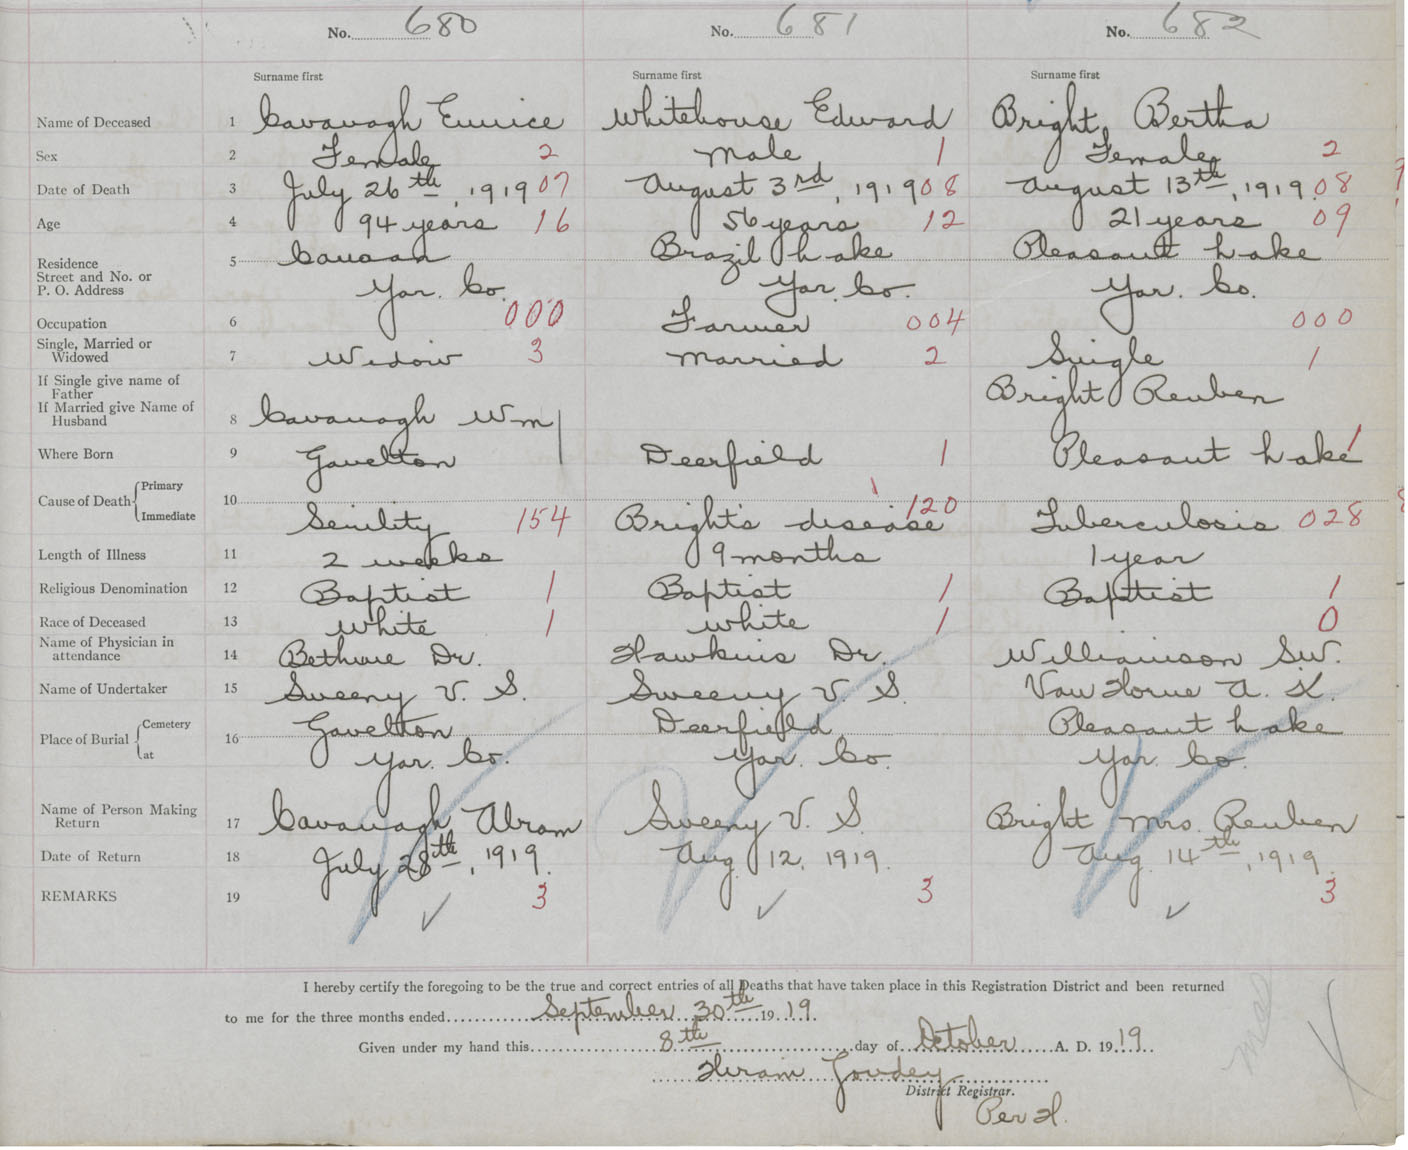 No. 680 No. 681 No. 682
Surname first Surname first Surname first
Name of Deceased 1 Cavanagh Eunice Whitehouse Edward Bright, Bertha
Sex 2 Female 2 Male 1 Female 2
Date of Death 3 July 26th, 1919 07 August 3rd, 1919 08 August 13th, 1919 08
Age 4 94 years 16 56 years 12 21 years 09
Residence 5 Canaan Brazil Lake Pleasant Lake
Street and No. or
P. O. Address Yar. Co. Yar. Co. Yar. Co.
Occupation 6 000 Farmer 004 000
Single, Married or
Widowed 7 Widow 3 Married 2 Single 1
If Single give name of
Father Bright Reuben
If Married give Name of
Husband 8 Cavanagh Wm
Where Born 9 Gavelton 1 Deerfield 1 Pleasant Lake 1
Cause of Death Primary 10
Immediate Senility 154 Bright's disease 120 Tuberculosis 028
Length of Illness 11 2 weeks 9 months 1 year
Religious Denomination 12 Baptist 1 Baptist 1 Baptist 1
Race of Deceased 13 White 1 White 1 0
Name of Physician in
attendance 14 Bethune Dr. Hawkins Dr. Williamson S.W.
Name of Undertaker 15 Sweeny V. S. Sweeny V. S. Van Horne A. K.
Place of Burial Cemetery 16 Gavelton Deerfield Pleasant Lake
at Yar. Co. Yar. Co. Yar. Co.
Name of Person Making
Return 17 Cavanagh Abram Sweeny V. S. Bright Mrs. Reuben
Date of Return 18 July 28th, 1919. Aug. 12, 1919. Aug. 14th, 1919.
REMARKS 19 3 3 3
I hereby certify the foregoing to be the true and correct entries of all Deaths that have taken place in this Registration District and been returned
to me for the three months ended September 30th 1919.
Given under my hand this 8th day of October A. D. 1919
Hiram Goudey
District Registrar.
Per H.